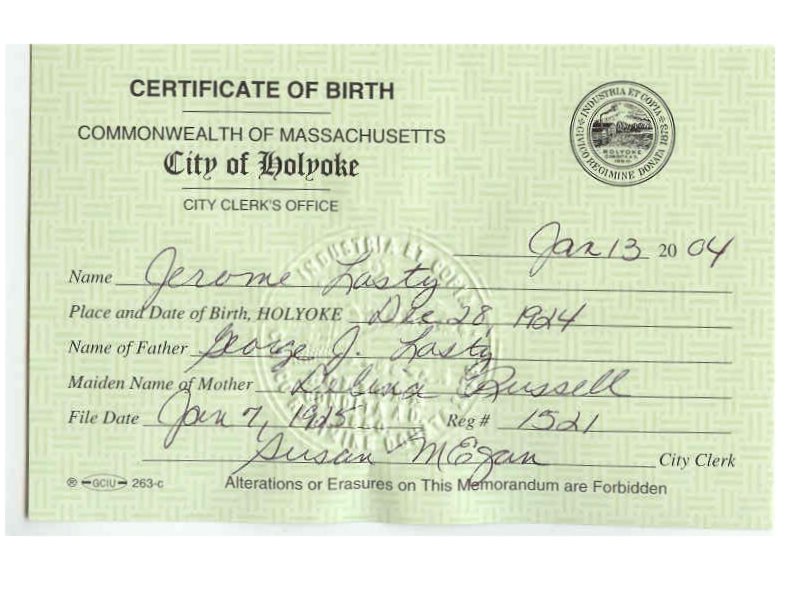 CERTIFICATE OF BIRTH
COMMONWEALTH OF MASSACHUSETTS
City of Holyoke
CITY CLERK'S OFFICE
INDUSTRIA ET COPIA
CIVICO REGIMINE DONATA 1873
HOLYOKE
Jan 13 20 04
Name Jerome Lasty
Place and Date of Birth, HOLYOKE Dec 28, 1924
Name of Father George J. Lasty
Maiden Name of Mother Russell
File Date Jan 7, 1925 Reg # 1521
Susan M Egan City Clerk
® GCIU 263-c Alterations or Erasures on This Memorandum are Forbidden
INDUSTRIA ET COPIA